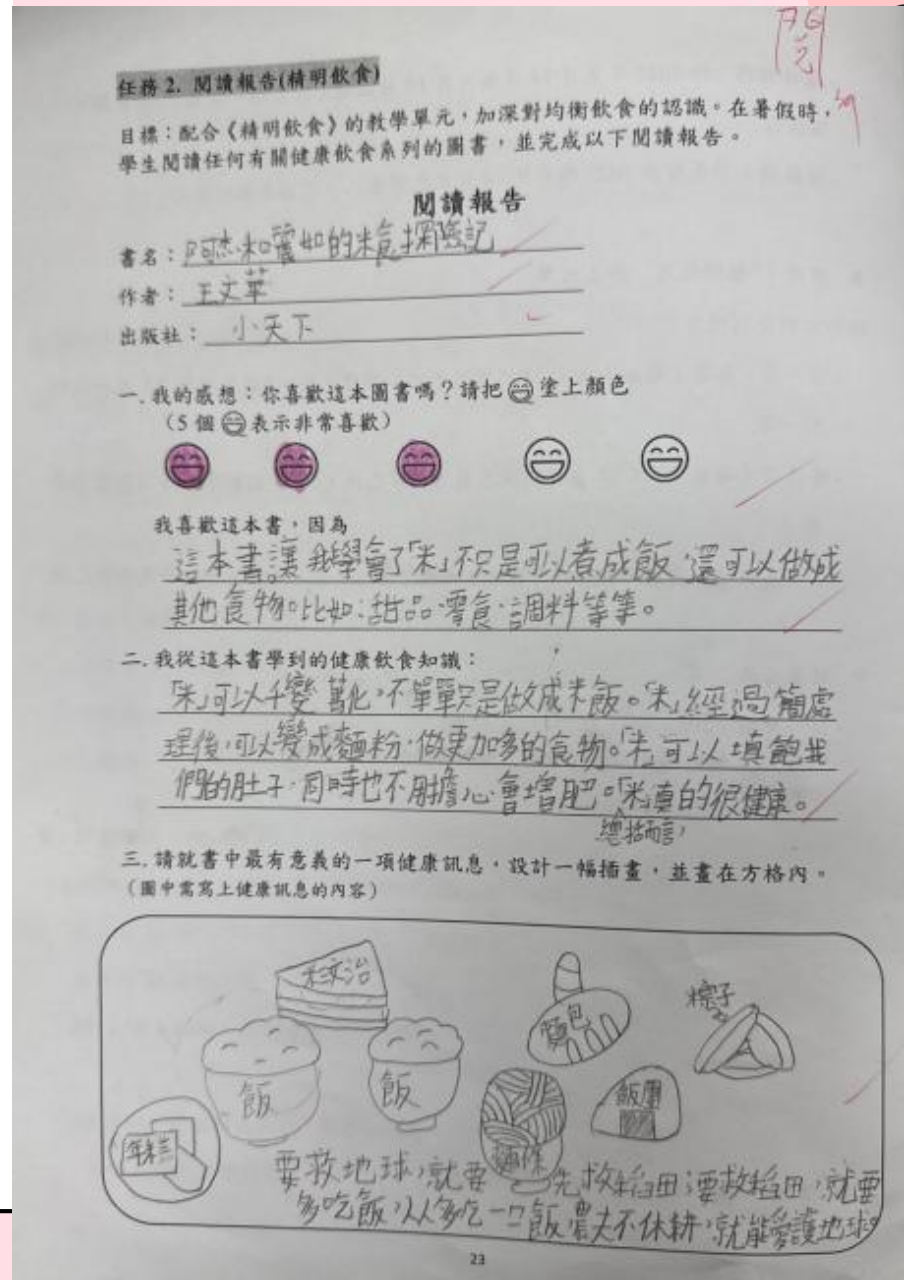 閱
任務 2. 閱讀報告(精明飲食)
目標：配合《精明飲食》的教學單元，加深對均衡飲食的認識。在暑假時，
學生閱讀任何有關健康飲食系列的圖書，並完成以下閱讀報告。
閱讀報告
書名：阿杰和麗如的米食探險記
作者：王文華
出版社：小天下
一. 我的感想：你喜歡這本圖書嗎？請把 塗上顏色
（5 個 表示非常喜歡）
我喜歡這本書，因為
這本書讓我學會了「米」不只是可以煮成飯，還可以做成
其他食物。比如：甜品、零食、調料等等。
二. 我從這本書學到的健康飲食知識：
「米」可以千變萬化，不單單只是做成米飯。「米」經過簡處
理後，可以變成麵粉，做更加多的食物。「米」可以填飽我
們的肚子，同時也不用擔心會增肥。「米」真的很健康。
總括而言，
三. 請就書中最有意義的一項健康訊息，設計一幅插畫，並畫在方格內。
（圖中需寫上健康訊息的內容）
米文治
麵包
粽子
飯
飯
飯團
年糕
麵條
要救地球，就要先救稻田；要救稻田，就要
多吃飯，人人多吃一口飯，農夫不休耕，就能愛護地球。
23